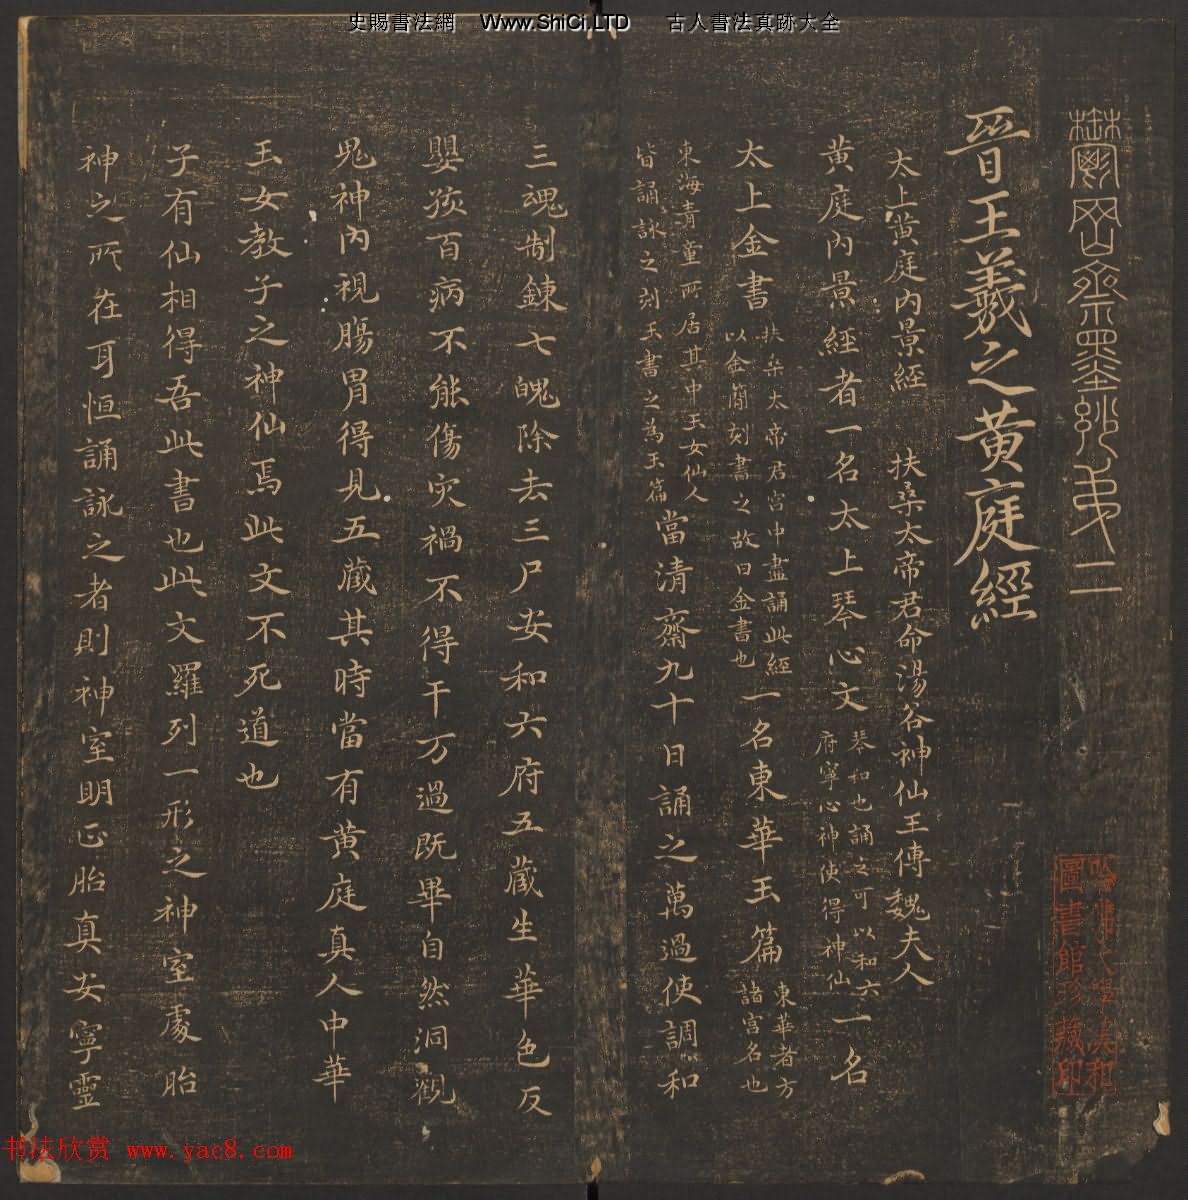 史賜書法網 Www.ShiCi.LTD 古人書法真跡大全
鬱岡齋墨妙第二
晉王羲之黄庭經
太上黄庭内景經 扶桑太帝君命湯谷神仙王傳魏夫人
黄庭内景經者一名太上琴心文琴和也誦之可以和六府寧心神使得神仙一名
太上金書扶桑太帝君宫中盡誦此經以金簡刻書之故曰金書也一名東華玉篇東華者方諸宫名也
東海青童所居其中玉女仙人皆誦詠之刻玉書之為玉篇當清齋九十日誦之萬過使調和
三魂制鍊七魄除去三尸安和六府五藏生華色反
嬰孩百病不能傷灾禍不得干万過既畢自然洞觀
鬼神内視腸胃得見五藏其時當有黄庭真人中華
玉女教子之神仙焉此文不死道也
子有仙相得吾此書也此文羅列一形之神室處胎
神之所在耳恒誦詠之者則神室明正胎真安寧靈
書法欣赏 www.yac8.com